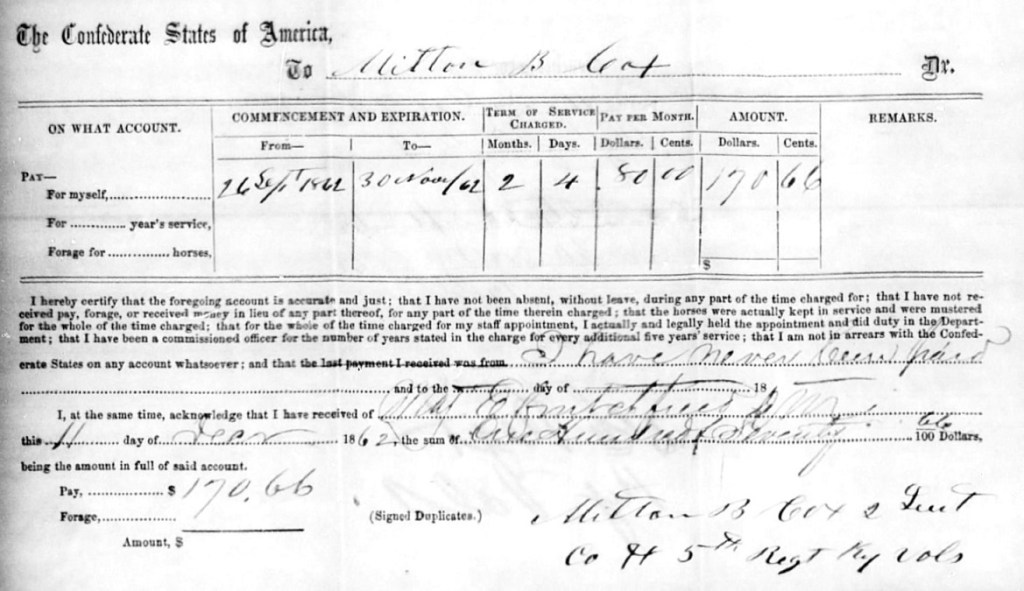 The Confederate States of America,
To Milton B Cox Dr.
ON WHAT ACCOUNT. COMMENCEMENT AND EXPIRATION. TERM OF SERVICE CHARGED. PAY PER MONTH. AMOUNT. REMARKS.
From— To— Months. Days. Dollars. Cents. Dollars. Cents.
PAY—
For myself, 26 Sept 1862 30 Nov/62 2 4 80 00 170 66
For year's service,
Forage for horses,
$
I hereby certify that the foregoing account is accurate and just; that I have not been absent, without leave, during any part of the time charged for; that I have not re-
ceived pay, forage, or received money in lieu of any part thereof, for any part of the time therein charged; that the horses were actually kept in service and were mustered
for the whole of the time charged; that for the whole of the time charged for my staff appointment, I actually and legally held the appointment and did duty in the Depart-
ment; that I have been a commissioned officer for the number of years stated in the charge for every additional five years' service; that I am not in arrears with the Confed-
erate States on any account whatsoever; and that the last payment I received was from I have never been paid
and to the day of 18
I, at the same time, acknowledge that I have received of Maj
this 11 day of Decr 1862, the sum of One Hundred & Seventy 66/100 Dollars,
being the amount in full of said account.
Pay, $ 170.66
Forage,
(Signed Duplicates.)
Amount, $
Milton B Cox 2 Lieut
Co H 5th Regt Ky Vols